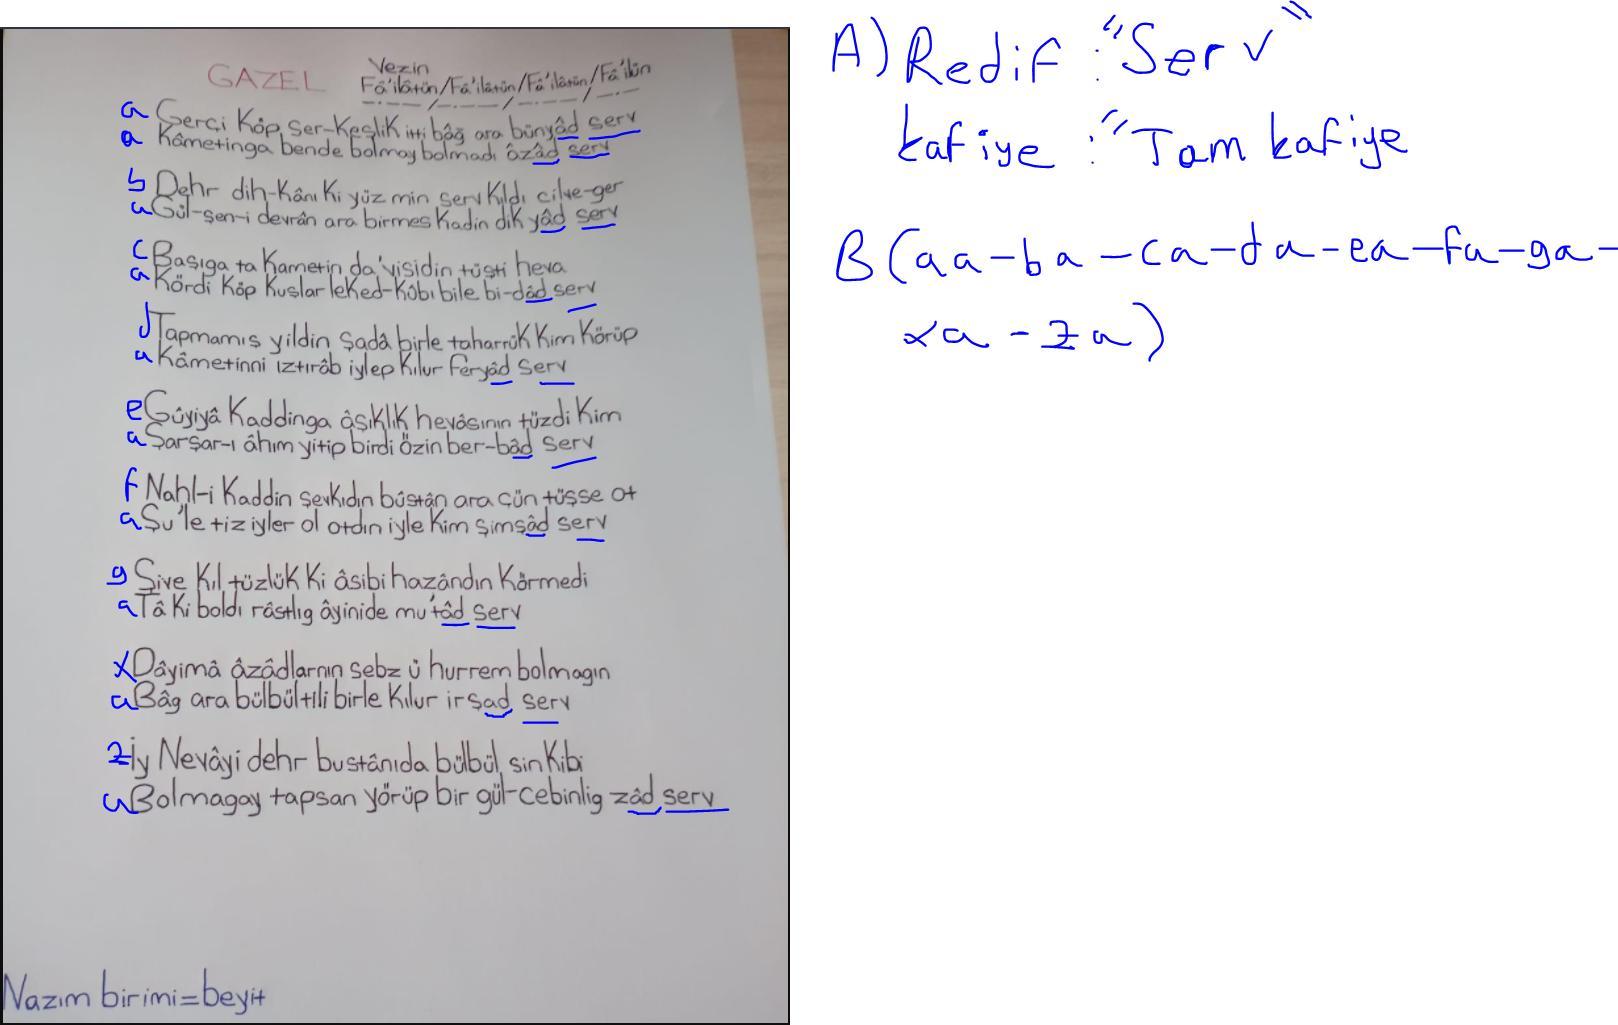 GAZEL
Vezin
Fâ'ilâtün/Fâ'ilâtün/Fâ'ilâtün/Fâ'ilün
_._ _/_._ _/_._ _/_._
a Gerçi Köp ser-Keşlik itti bâğ ara bünyâd serv
a Kâmetinga bende bolmay bolmadı âzâd serv
b Dehr dih-Kânı Ki yüz min serv Kıldı cilve-ger
a Gül-şen-i devrân ara birmes Kadin dik yâd serv
c Başıga ta Kametin da'visidin tüşti heva
a Kördi Köp Kuşlar leked-Kûbı bile bi-dâd serv
d Tapmamış yildin şadâ birle taharrük Kim Körüp
a Kâmetinni ıztırâb iylep Kılur feryâd serv
e Gûyiyâ Kaddinga âşıKlıK hevâsının tüzdi Kim
a Şarşar-ı âhım yitip birdi özin ber-bâd serv
f Nahl-i Kaddin şevKıdın bústân ara çün tüşse ot
a Şu'le tiz iyler ol otdın iyle Kim şimşâd serv
g Şive Kıl tüzlük Ki âsibi hazândın Körmedi
a Tâ Ki boldı râstlıg âyinide mu'tâd serv
x Dâyimâ âzâdlarnın sebz ü hurrem bolmagın
a Bâg ara bülbül tili birle Kılur irşad serv
z İy Nevâyi dehr bustânıda bülbül sin Kibi
a Bolmagay tapsan yörüp bir gül-cebinlig zâd serv
Nazım birimi=beyit
A) Redif : "Serv"
kafiye : "Tam kafiye
B (aa-ba-ca-da-ea-fa-ga-
xa-za)